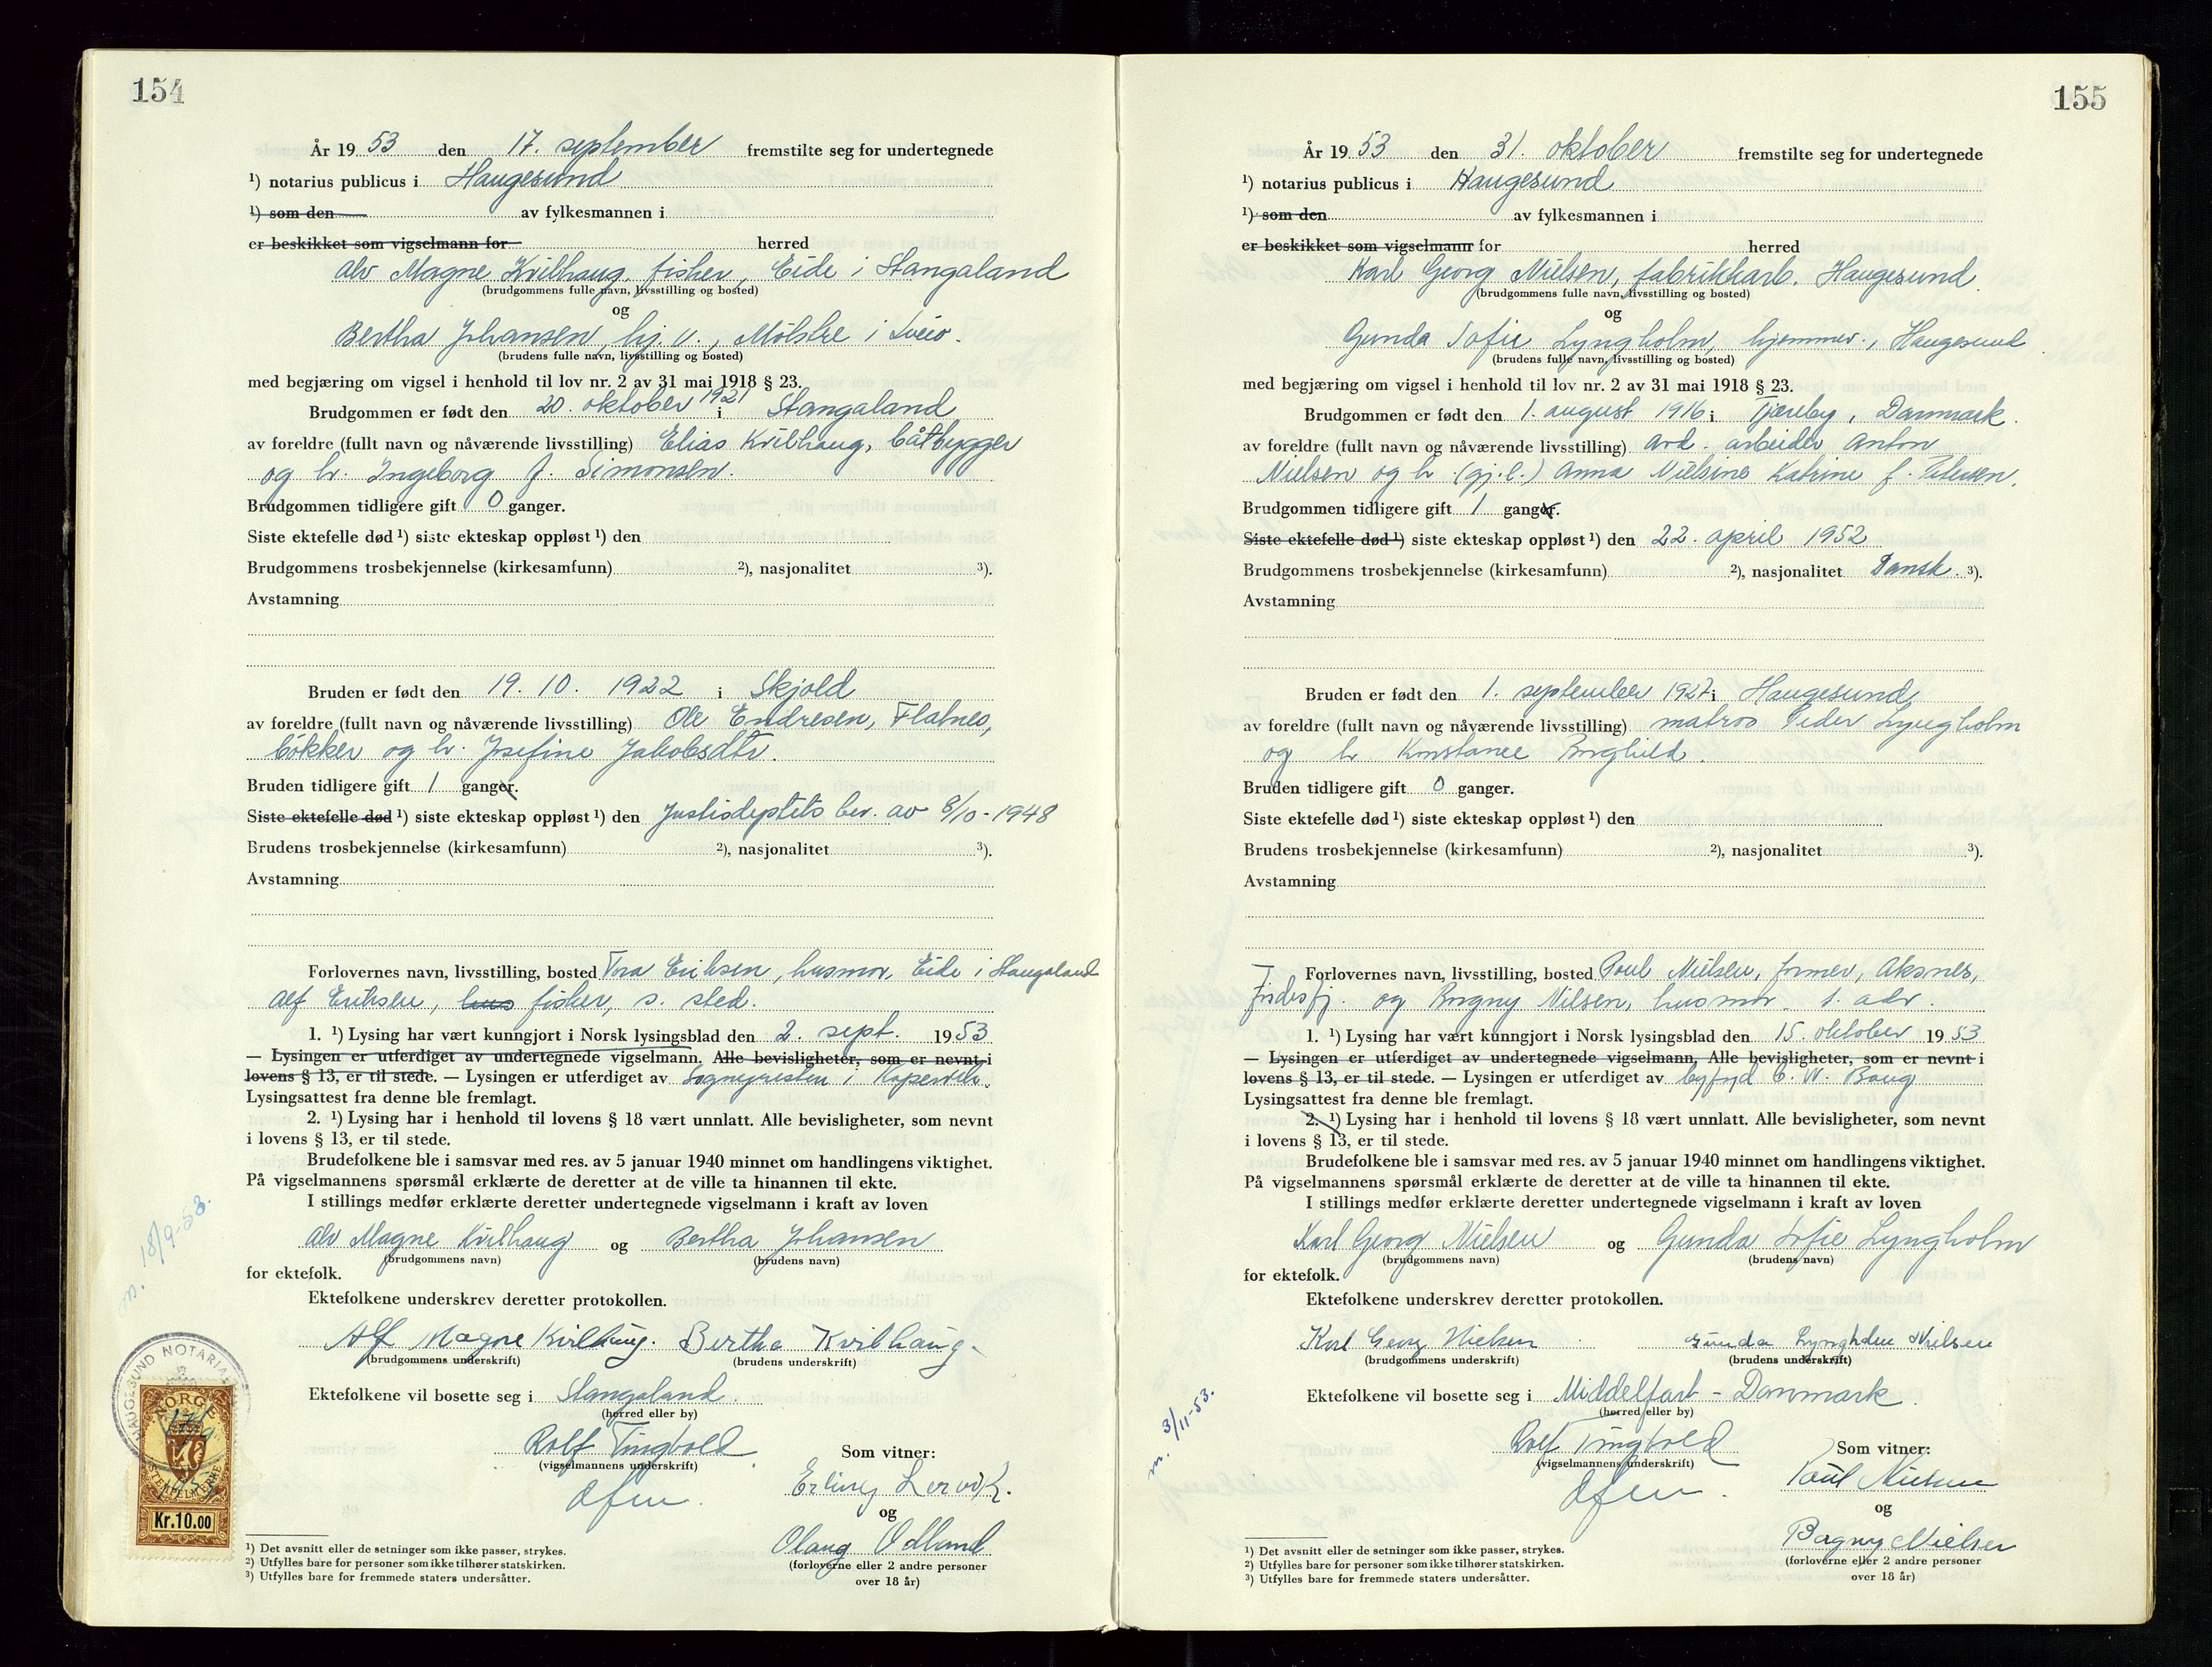 154
År 19 53 den 17. september fremstilte seg for undertegnede
¹) notarius publicus i Haugesund
¹) som den av fylkesmannen i
er beskikket som vigselmann for herred
Alv Magne Kvilhaug, fisker, Eide i Stangaland
(brudgommens fulle navn, livsstilling og bosted)
og
Bertha Johansen, hj. v., Mölstre i Sveio.
(brudens fulle navn, livsstilling og bosted)
med begjæring om vigsel i henhold til lov nr. 2 av 31 mai 1918 § 23.
Brudgommen er født den 20. oktober 1921 i Stangaland
av foreldre (fullt navn og nåværende livsstilling) Elias Kvilhaug, båtbygger
og h. Ingeborg f. Simonsen.
Brudgommen tidligere gift 0 ganger.
Siste ektefelle død ¹) siste ekteskap oppløst ¹) den
Brudgommens trosbekjennelse (kirkesamfunn) ²), nasjonalitet ³).
Avstamning
Bruden er født den 19. 10. 1922 i Skjold
av foreldre (fullt navn og nåværende livsstilling) Ole Endresen, Flatnes,
bökker og h. Josefine Jakobsdtr.
Bruden tidligere gift 1 ganger.
Siste ektefelle død ¹) siste ekteskap oppløst ¹) den Justisdeptets bev. av 8/10 - 1948
Brudens trosbekjennelse (kirkesamfunn) ²), nasjonalitet ³).
Avstamning
Forlovernes navn, livsstilling, bosted Tora Eriksen, husmor, Eide i Stangaland
Alf Eriksen, hus fisker, s. sted.
1. ¹) Lysing har vært kunngjort i Norsk lysingsblad den 2. sept. 19 53
— Lysingen er utferdiget av undertegnede vigselmann. Alle bevisligheter, som er nevnt i
lovens § 13, er til stede. — Lysingen er utferdiget av Sognepresten i Kopervik.
Lysingsattest fra denne ble fremlagt.
2. ¹) Lysing har i henhold til lovens § 18 vært unnlatt. Alle bevisligheter, som nevnt
i lovens § 13, er til stede.
Brudefolkene ble i samsvar med res. av 5 januar 1940 minnet om handlingens viktighet.
På vigselmannens spørsmål erklærte de deretter at de ville ta hinannen til ekte.
I stillings medfør erklærte deretter undertegnede vigselmann i kraft av loven
Alv Magne Kvilhaug og Bertha Johansen
(brudgommens navn) (brudens navn)
for ektefolk.
Ektefolkene underskrev deretter protokollen.
Alf Magne Kvilhaug. Bertha Kvilhaug.
(brudgommens underskrift) (brudens underskrift)
Ektefolkene vil bosette seg i Stangaland.
(herred eller by)
Rolf Tingvold
(vigselmannens underskrift)
Som vitner:
Erling Lervik.
og
Olaug Odland
(forloverne eller 2 andre personer
over 18 år)
m. 18/9-53.
HAUGESUND NOTARIA
NORGE
17/9
1953
STEMPELMERKE
Kr.10.00
¹) Det avsnitt eller de setninger som ikke passer, strykes.
²) Utfylles bare for personer som ikke tilhører statskirken.
³) Utfylles bare for fremmede staters undersåtter.
155
År 19 53 den 31. oktober fremstilte seg for undertegnede
¹) notarius publicus i Haugesund
¹) som den av fylkesmannen i
er beskikket som vigselmann for herred
Karl Georg Nielsen, fabrikkarb. Haugesund.
(brudgommens fulle navn, livsstilling og bosted)
og
Gunda Sofie Lyngholm, hjemmev., Haugesund
(brudens fulle navn, livsstilling og bosted)
med begjæring om vigsel i henhold til lov nr. 2 av 31 mai 1918 § 23.
Brudgommen er født den 1. august 1916 i Tjæreby, Danmark.
av foreldre (fullt navn og nåværende livsstilling) avd. arbeider Anton
Nielsen og h. (gj.l.) Anna Nielsine Katrine f. Petersen.
Brudgommen tidligere gift 1 ganger.
Siste ektefelle død ¹) siste ekteskap oppløst ¹) den 22. april 1952
Brudgommens trosbekjennelse (kirkesamfunn) ²), nasjonalitet Dansk. ³).
Avstamning
Bruden er født den 1. september 1927 i Haugesund
av foreldre (fullt navn og nåværende livsstilling) matros Peder Lyngholm
og h. Konstance Borghild.
Bruden tidligere gift 0 ganger.
Siste ektefelle død ¹) siste ekteskap oppløst ¹) den
Brudens trosbekjennelse (kirkesamfunn) ²), nasjonalitet ³).
Avstamning
Forlovernes navn, livsstilling, bosted Poul Nielsen, former, Aksnes,
og Borgny Nilsen, husmor s. adr.
1. ¹) Lysing har vært kunngjort i Norsk lysingsblad den 15. oktober 19 53
— Lysingen er utferdiget av undertegnede vigselmann, Alle bevisligheter, som er nevnt i
lovens § 13, er til stede. — Lysingen er utferdiget av byfgd C. W. Baug
Lysingsattest fra denne ble fremlagt.
2. ¹) Lysing har i henhold til lovens § 18 vært unnlatt. Alle bevisligheter, som nevnt
i lovens § 13, er til stede.
Brudefolkene ble i samsvar med res. av 5 januar 1940 minnet om handlingens viktighet.
På vigselmannens spørsmål erklærte de deretter at de ville ta hinannen til ekte.
I stillings medfør erklærte deretter undertegnede vigselmann i kraft av loven
Karl Georg Nielsen og Gunda Sofie Lyngholm
(brudgommens navn) (brudens navn)
for ektefolk.
Ektefolkene underskrev deretter protokollen.
Karl Georg Nielsen Gunda Lyngholm Nielsen
(brudgommens underskrift) (brudens underskrift)
Ektefolkene vil bosette seg i Middelfart - Danmark.
(herred eller by)
Rolf Tingvold
(vigselmannens underskrift)
Som vitner:
Poul Nielsen
og
Borgny Nielsen
(forloverne eller 2 andre personer
over 18 år)
m. 3/11-53.
¹) Det avsnitt eller de setninger som ikke passer, strykes.
²) Utfylles bare for personer som ikke tilhører statskirken.
³) Utfylles bare for fremmede staters undersåtter.